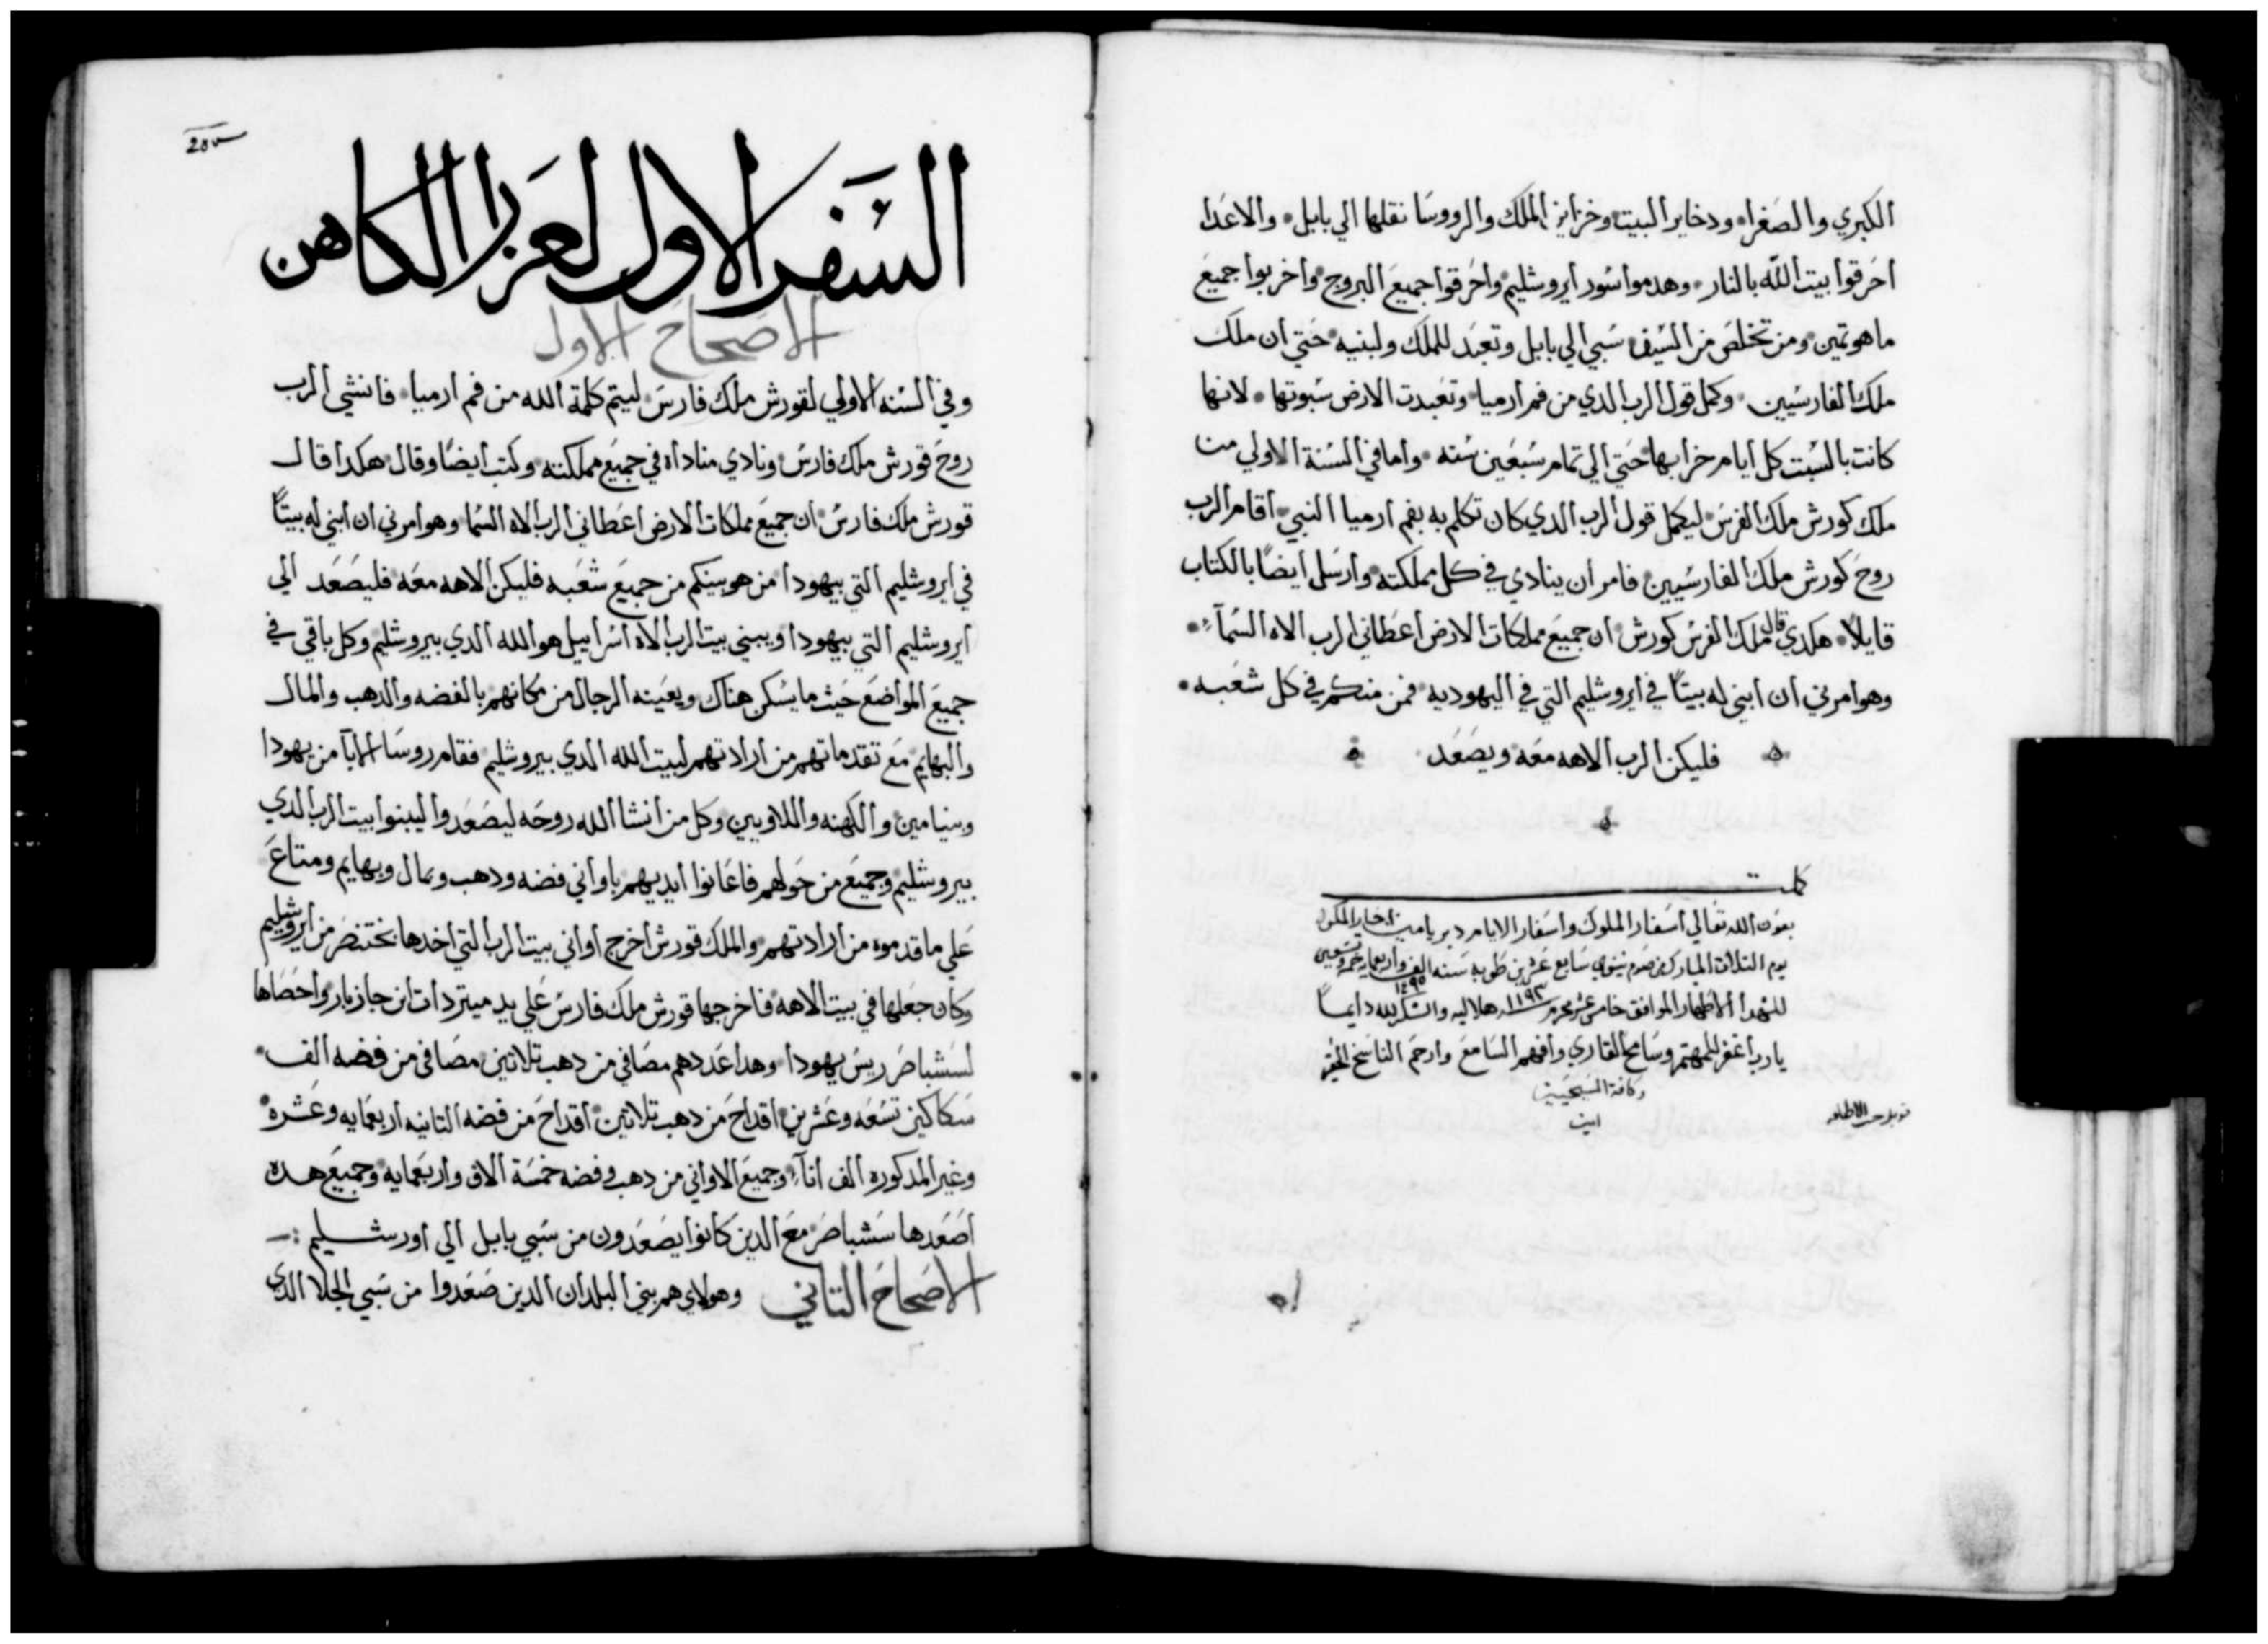 الكبري والصغرا ودخاير البيت وخزاين الملك والرووسا نقلها الي بابل والاعدا
احرقوا بيت الله بالنار وهدموا سور ايروشليم واحرقوا جميع البروج واخربوا جميع
ما هو تمين ومن تخلص من السيف سبي الي بابل وتعبد للملك ولبنيه حتي ان ملك
ملك الفارسيين وكمل قول الرب الدي من فم ارميا وتعبدت الارض سبوتها لانها
كانت بالسبت كل ايام خرابها حتي الي تمام سبعين سنه واما في السنة الاولي من
ملك كورش ملك الفرس ليكمل قول الرب الدي كان تكلم به بفم ارميا النبي اقام الرب
روح كورش ملك الفارسيين فامر ان ينادي في كل مملكته وارسل ايضاً بالكتاب
قايلاً هكدي قال ملك الفرس كورش ان جميع مملكات الارض اعطاني الرب الاه السمآء
وهو امرني ان ابني له بيتاً في ايروشليم التي في اليهوديه فمن منكم في كل شعبه
فليكن الرب الاهه معه ويصعد
كملت
بعون الله تعالي اسفار الملوك واسفار الايام دبريامين اخبار الملوك
يوم التلات المبارك من صوم نينوي سابع عشرين طوبه سنه الف واربعمايه خمسه وتسعين
١٤٩٥
للشهدا الاطهار الموافق خامس عشر محرم ١١٩٣ هلاليه والشكر لله دايماً
يارب اغفر للمهتم وسامح القاري وافهم السامع وارحم الناسخ
وكافة المسيحيين
امين
السفر الاول لعزرا الكاهن
الاصحاح الاول
وفي السنه الاولي لقورش ملك فارس ليتم كلمة الله من فم ارميا فانشي الرب
روح قورش ملك فارس ونادي مناداه في جميع مملكته وكتب ايضاً وقال هكدا قال
قورش ملك فارس ان جميع مملكات الارض اعطاني الرب الاه السما وهو امرني ان ابني له بيتاً
في ايروشليم التي بيهودا من هو بينكم من جميع شعبه فليكن الاهه معه فليصعد الي
ايروشليم التي بيهودا ويبني بيت الرب الاه اسراييل هو الله الدي بيروشليم وكل باقي في
جميع المواضع حيث ما يسكن هناك ويعينه الرجال من مكانهم بالفضه والدهب والمال
والبهايم مع تقدماتهم من ارادتهم لبيت الله الدي بيروشليم فقام رروسا الابآ من يهودا
وبنيامين والكهنه واللاويين وكل من انشا الله روحه ليصعدوا ليبنوا بيت الرب الدي
بيروشليم وجميع من حولهم فاعانوا ايديهم باواني فضه ودهب وبمال وبهايم ومتاع
علي ما قدموه من ارادتهم والملك قورش اخرج اواني بيت الرب التي اخدها بختنصر من ايروشليم
وكان جعلها في بيت الاهه فاخرجها قورش ملك فارس علي يد ميتردات ابن جازبار واحصاها
لسشباصر ريس يهودا وهدا عددهم مصافي من دهب تلاتين مصافي من فضه الف
سكاكين تسعه وعشرين اقداح من دهب تلاتين اقداح من فضه التانيه اربعمايه وعشره
وغير المدكوره الف انآء وجميع الاواني من دهب وفضه خمسة الاف واربعمايه وجميع هده
اصعدها سشباصر مع الدين كانوا يصعدون من سبي بابل الي اورشليم
الاصحاح التاني وهولاي هم بني البلدان الدين صعدوا من سبي الجلا الدي